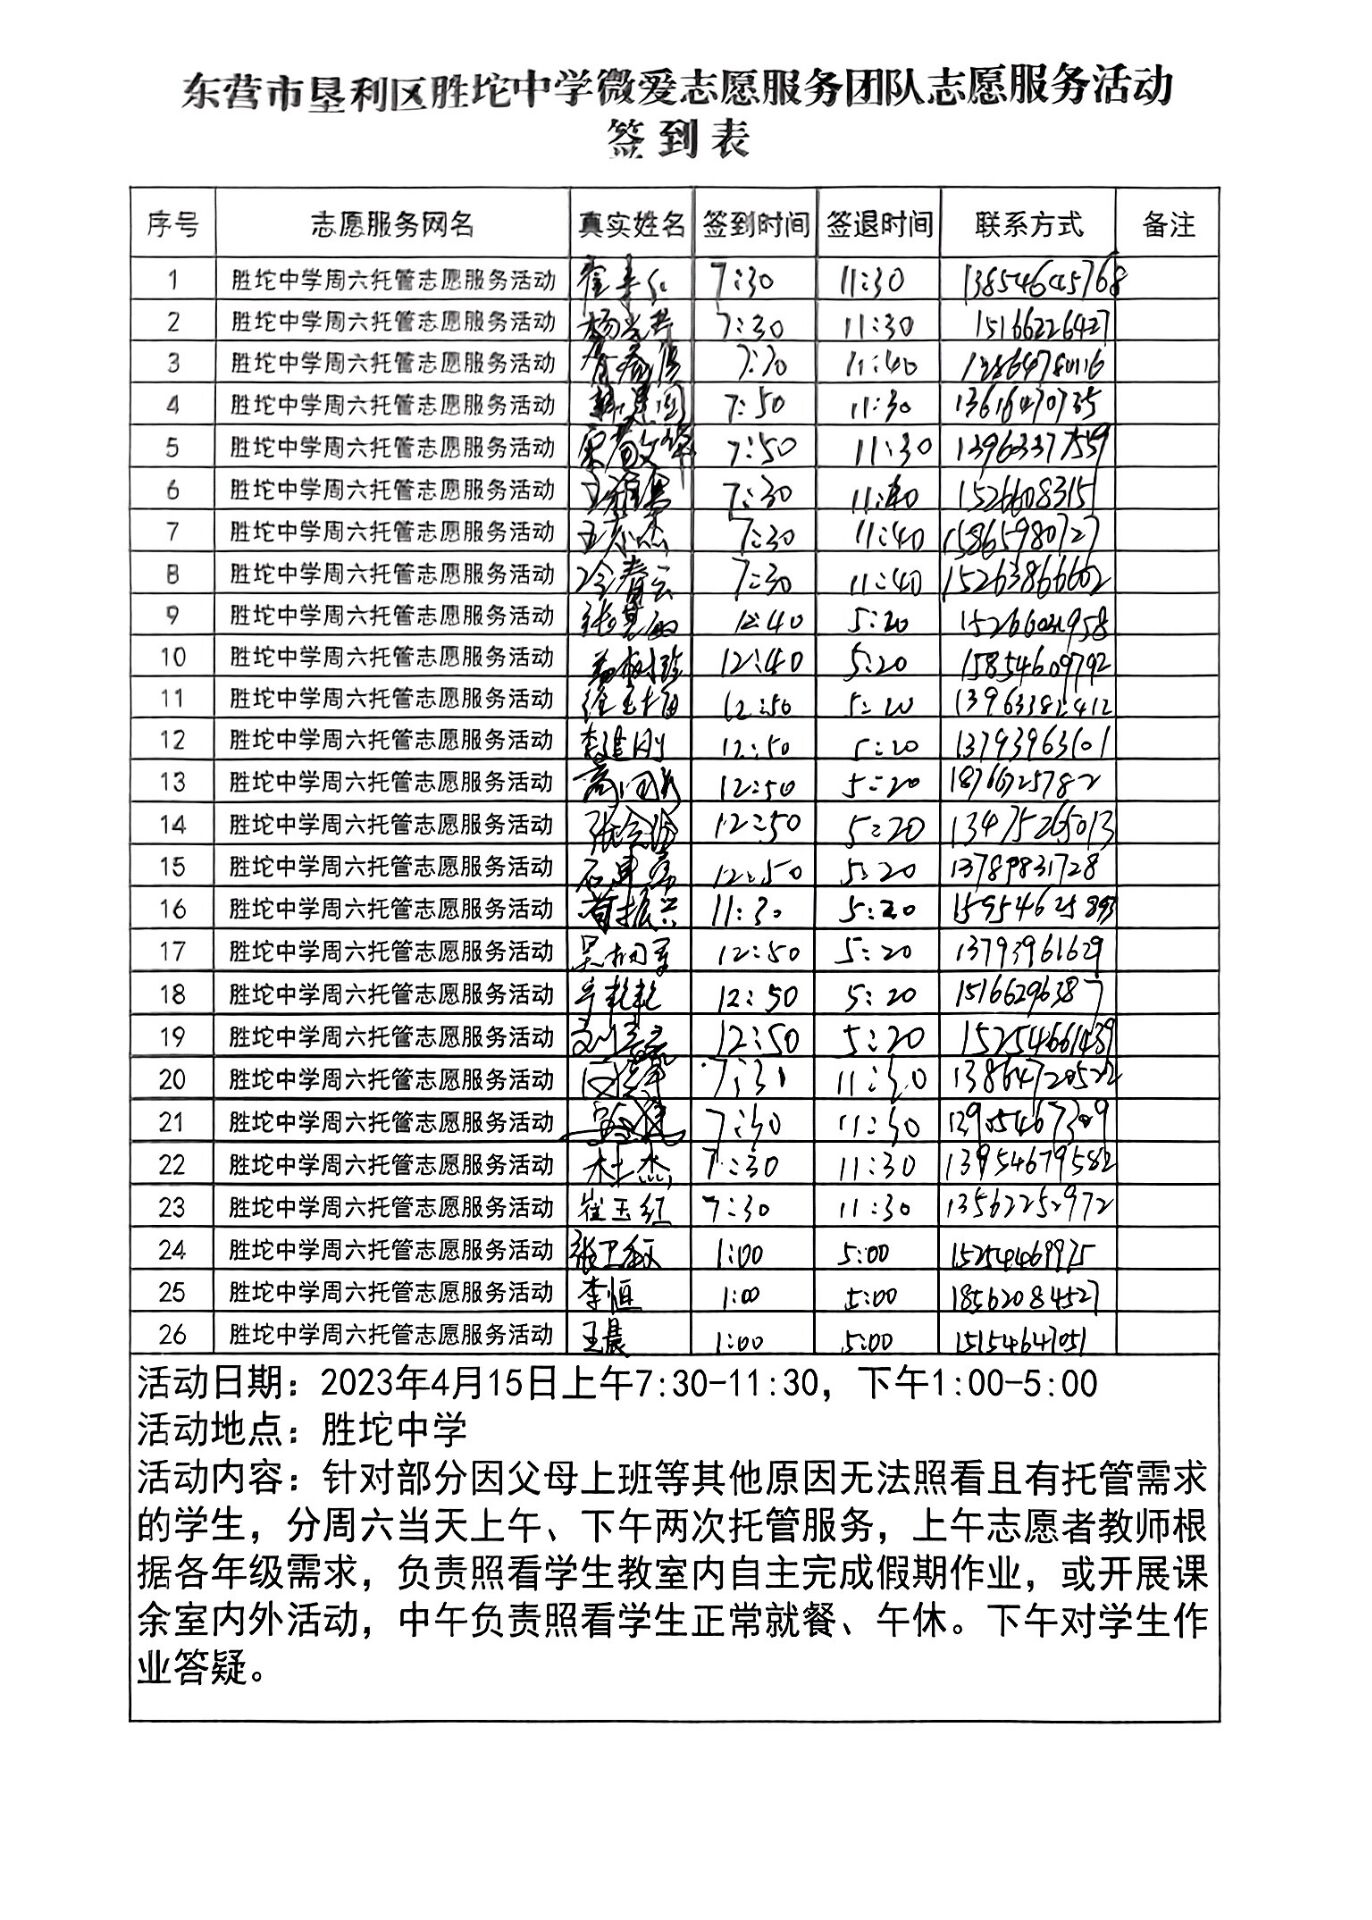 东营市垦利区胜坨中学微爱志愿服务团队志愿服务活动
签到表
序号 志愿服务网名 真实姓名 签到时间 签退时间 联系方式 备注
1 胜坨中学周六托管志愿服务活动 7:30 11:30 13854645768
2 胜坨中学周六托管志愿服务活动 7:30 11:30 15166226427
3 胜坨中学周六托管志愿服务活动 11:40
4 胜坨中学周六托管志愿服务活动 7:50 11:30 13616470735
5 胜坨中学周六托管志愿服务活动 7:50 11:30 13963377559
6 胜坨中学周六托管志愿服务活动 7:30 11:40
7 胜坨中学周六托管志愿服务活动 7:30 11:40 15865980727
8 胜坨中学周六托管志愿服务活动 冷春云 7:30 11:40 15263866602
9 胜坨中学周六托管志愿服务活动 12:40 5:20
10 胜坨中学周六托管志愿服务活动 12:40 5:20 15854609792
11 胜坨中学周六托管志愿服务活动 12:50 5:20 13963382412
12 胜坨中学周六托管志愿服务活动 李建刚 12:50 5:20 13793963101
13 胜坨中学周六托管志愿服务活动 12:50 5:20 18766725782
14 胜坨中学周六托管志愿服务活动 12:50 5:20 13475265013
15 胜坨中学周六托管志愿服务活动 12:50 5:20 13789831728
16 胜坨中学周六托管志愿服务活动 11:30 5:20
17 胜坨中学周六托管志愿服务活动 12:50 5:20 13793961629
18 胜坨中学周六托管志愿服务活动 12:50 5:20 15166296387
19 胜坨中学周六托管志愿服务活动 12:50 5:20
20 胜坨中学周六托管志愿服务活动 11:30 13864720522
21 胜坨中学周六托管志愿服务活动 7:30 11:30 13905467309
22 胜坨中学周六托管志愿服务活动 杜杰 7:30 11:30 13954679582
23 胜坨中学周六托管志愿服务活动 崔玉红 7:30 11:30 13562252972
24 胜坨中学周六托管志愿服务活动 1:00 5:00 15254469975
25 胜坨中学周六托管志愿服务活动 李恒 1:00 5:00 18562084527
26 胜坨中学周六托管志愿服务活动 王晨 1:00 5:00 15154647051
活动日期：2023年4月15日上午7:30-11:30，下午1:00-5:00
活动地点：胜坨中学
活动内容：针对部分因父母上班等其他原因无法照看且有托管需求
的学生，分周六当天上午、下午两次托管服务，上午志愿者教师根
据各年级需求，负责照看学生教室内自主完成假期作业，或开展课
余室内外活动，中午负责照看学生正常就餐、午休。下午对学生作
业答疑。